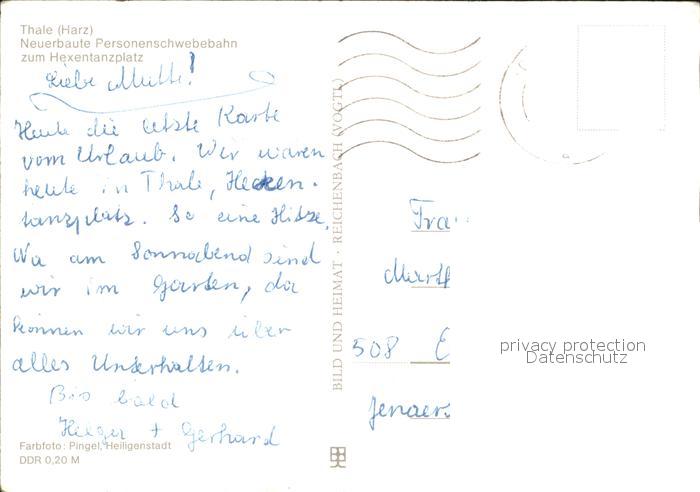 Thale (Harz)
Neuerbaute Personenschwebebahn
zum Hexentanzplatz
Liebe Mutti!
Heute die letzte Karte
vom Urlaub. Wir waren
heute in Thale, Hexen-
tanzplatz. So eine Hitze.
Na am Sonnabend sind
wir im Garten, da
können wir uns über
alles Unterhalten.
Bis bald
Helga + Gerhard
Farbfoto: Pingel, Heiligenstadt
DDR 0,20 M
BILD UND HEIMAT · REICHENBACH (VOGTL)
Frau
508 E
Jenaers
privacy protection
Datenschutz